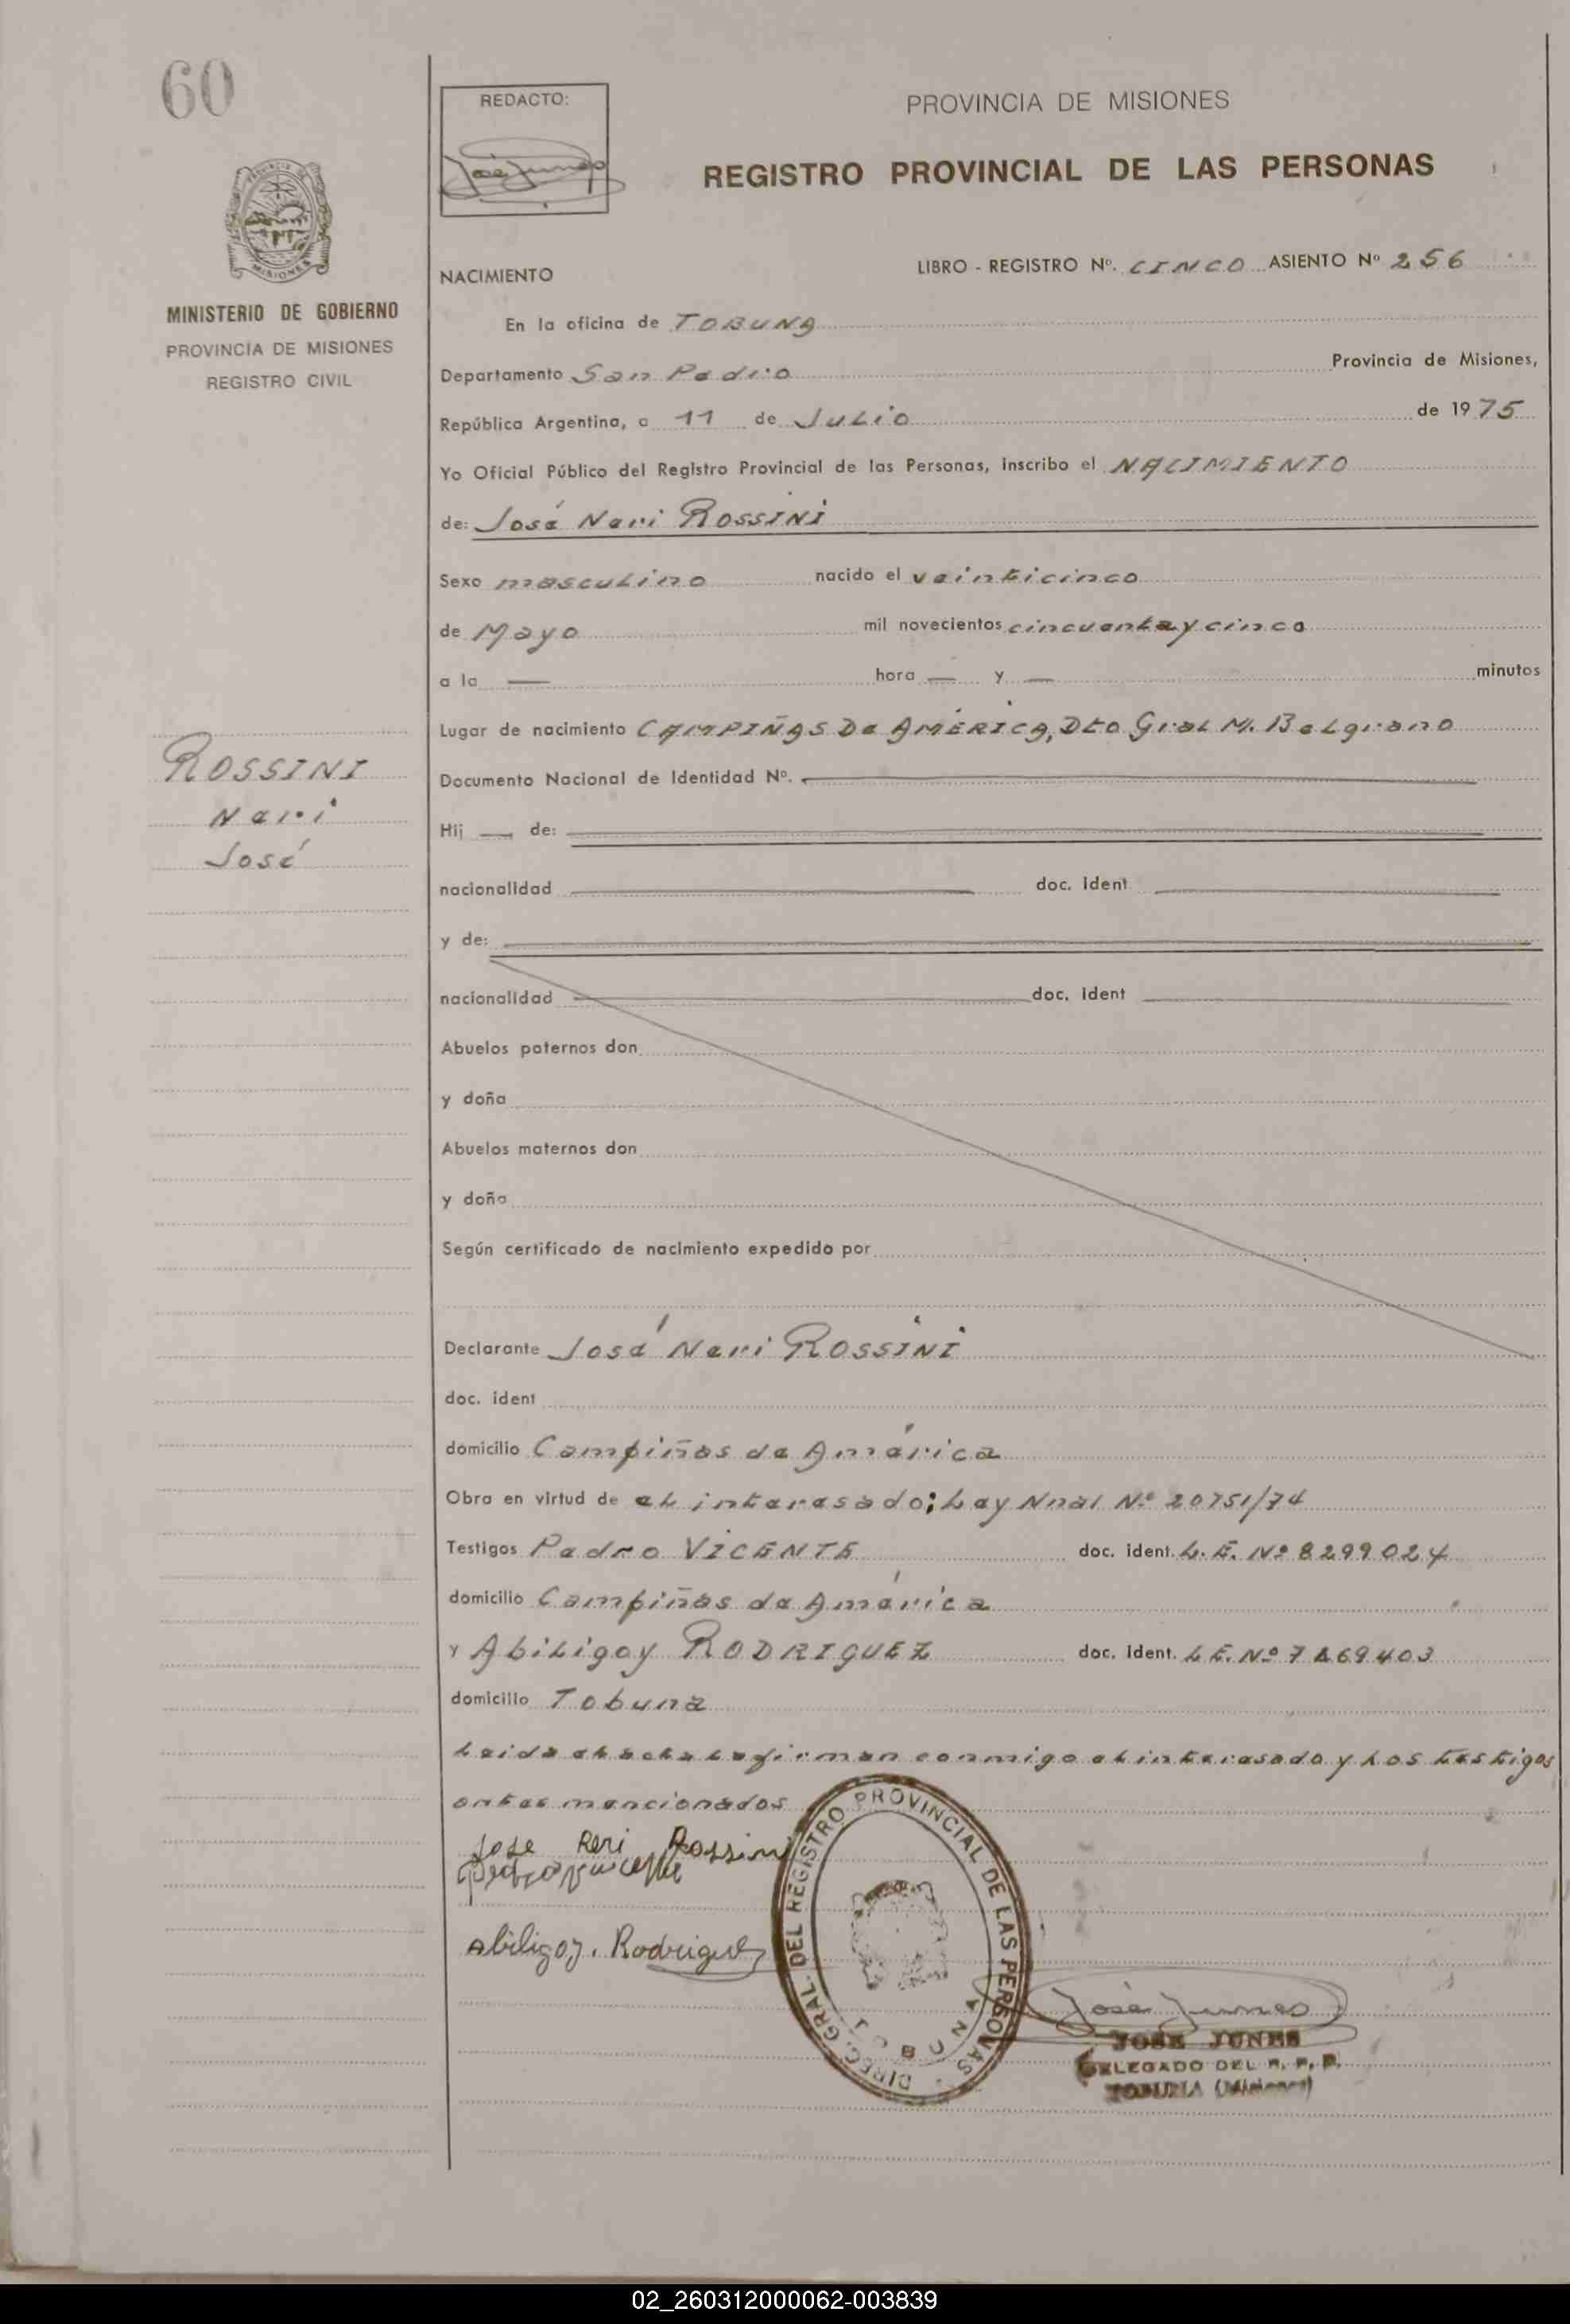 60
REDACTO:
José Junes
PROVINCIA DE MISIONES
REGISTRO PROVINCIAL DE LAS PERSONAS
MISIONES
MINISTERIO DE GOBIERNO
PROVINCIA DE MISIONES
REGISTRO CIVIL
NACIMIENTO
LIBRO - REGISTRO Nº. CINCO ASIENTO Nº 256
En la oficina de TOBUNA
Departamento San Pedro Provincia de Misiones,
República Argentina, a 11 de Julio de 1975
Yo Oficial Público del Registro Provincial de las Personas, inscribo el NACIMIENTO
de: José Neri ROSSINI
Sexo masculino nacido el veinticinco
de Mayo mil novecientos cincuenta y cinco
a la — hora — y — minutos
Lugar de nacimiento CAMPIÑAS De AMÉRICA, Dto Gral M. Belgrano
ROSSINI
Neri
José
Documento Nacional de Identidad Nº.
Hij — de:
nacionalidad doc. ident
y de:
nacionalidad doc. ident
Abuelos paternos don
y doña
Abuelos maternos don
y doña
Según certificado de nacimiento expedido por
Declarante José Neri ROSSINI
doc. ident
domicilio Campiñas de América
Obra en virtud de el interesado; Ley Nnal Nº 20751/74
Testigos Pedro VICENTE doc. ident. L.E. Nº 8299024
domicilio Campiñas de América
y Abiligoy RODRIGUEZ doc. ident. L.E. Nº 7469403
domicilio Tobuna
Leida el acta la firman conmigo el interesado y los testigos
antes mencionados
Jose Reri Rossini
Abiligoy. Rodriguez
DIREC. GRAL. DEL REGISTRO PROVINCIAL DE LAS PERSONAS
José Junes
JOSE JUNES
DELEGADO DEL R. P. P.
TOBUNA (Misiones)
02_260312000062-003839